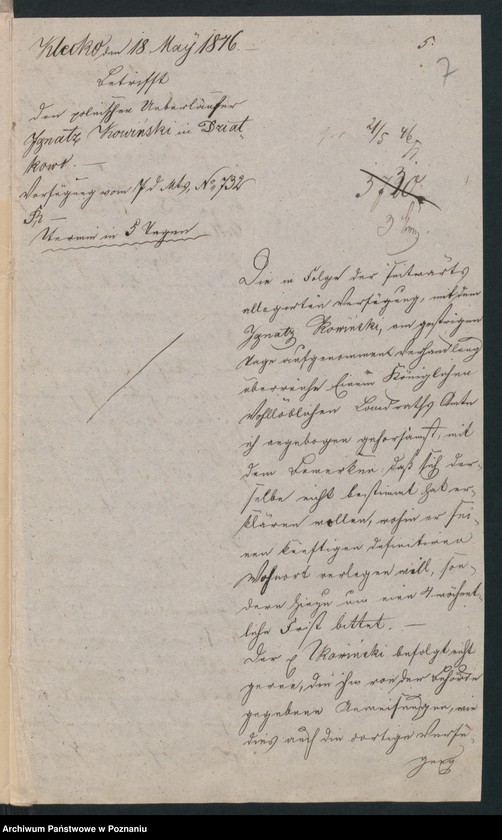 Klecko, den 18 May 1846.
5.
7
Betrifft
den polnischen Ueberläufer
Ignatz Kowinski in Dziat-
kowo. —
Verfügung vom 7 d. Mts, No 732
Termin in 5 Tagen
21/5 46
3720.
Die in Folge der seitwärts
allegirten Verfügung, mit dem
Ignatz Kowinski, am gestrigen
Tage aufgenommene Verhandlung
überreiche Einem Königlichen
Wohllöblichen Landraths Amte
ich angebogen gehorsamst, mit
dem Bemerken, daß sich der-
selbe nicht bestimmt hat er-
klären wollen, wohin er sei-
nen künftigen definitiven
Wohnort verlegen will, son-
dern hiezu um eine 4 wöchent-
liche Frist bittet. —
Der p Kowinski befolgt nicht
gerne, die ihm von der Behörde
gegebene Anweisungen, wie
dies auch die dortige Verfü-
gung
Archiwum Państwowe w Poznaniu